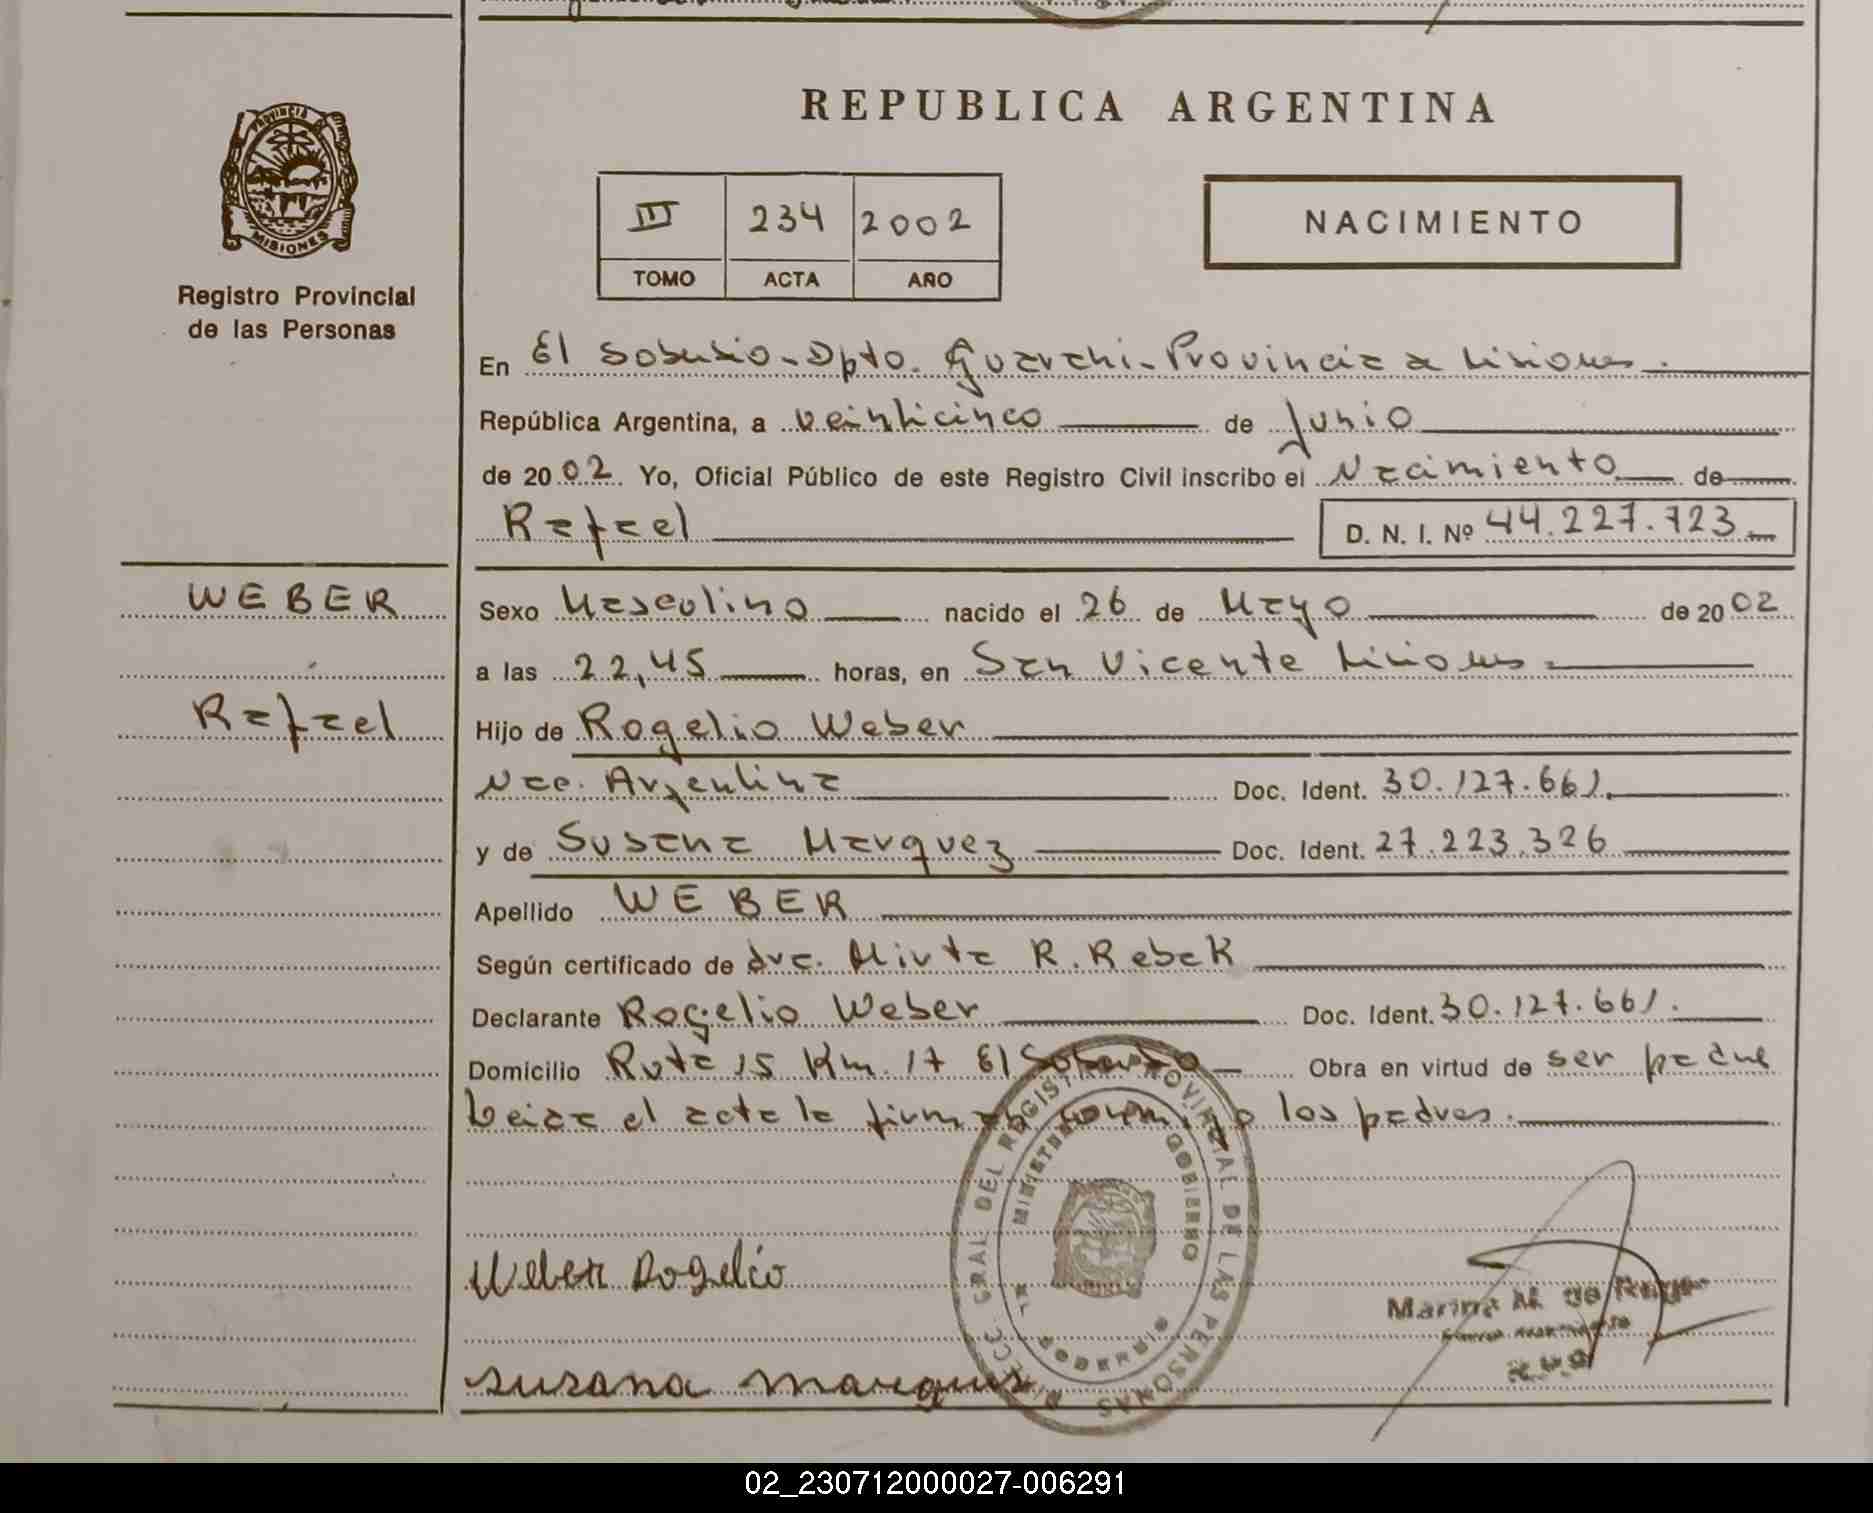 REPUBLICA ARGENTINA
PROVINCIA DE
MISIONES
Registro Provincial
de las Personas
III 234 2002
TOMO ACTA AÑO
NACIMIENTO
En El Soberbio - Dpto. Guarani - Provincia de Misiones.
República Argentina, a veinticinco de Junio
de 2002. Yo, Oficial Público de este Registro Civil inscribo el Nacimiento de
Rafael
D. N. I. Nº 44.227.723.-
WEBER
Rafael
Sexo Masculino nacido el 26 de Mayo de 2002
a las 22,45 horas, en San Vicente Misiones.
Hijo de Rogelio Weber
Nac. Argentina Doc. Ident. 30.127.661.
y de Susana Marquez Doc. Ident. 27.223.326
Apellido WEBER
Según certificado de dra. Mirta R. Rebak
Declarante Rogelio Weber Doc. Ident. 30.127.661.
Domicilio Ruta 15 Km. 17 El Soberbio Obra en virtud de ser padre
Leida el acta la firman conmigo los padres.
Weber Rogelio
Susana Marquez
DIRECC GRAL DEL REGISTRO PROVINCIAL DE LAS PERSONAS
MINISTERIO GOBIERNO
Marina M. de
02_230712000027-006291